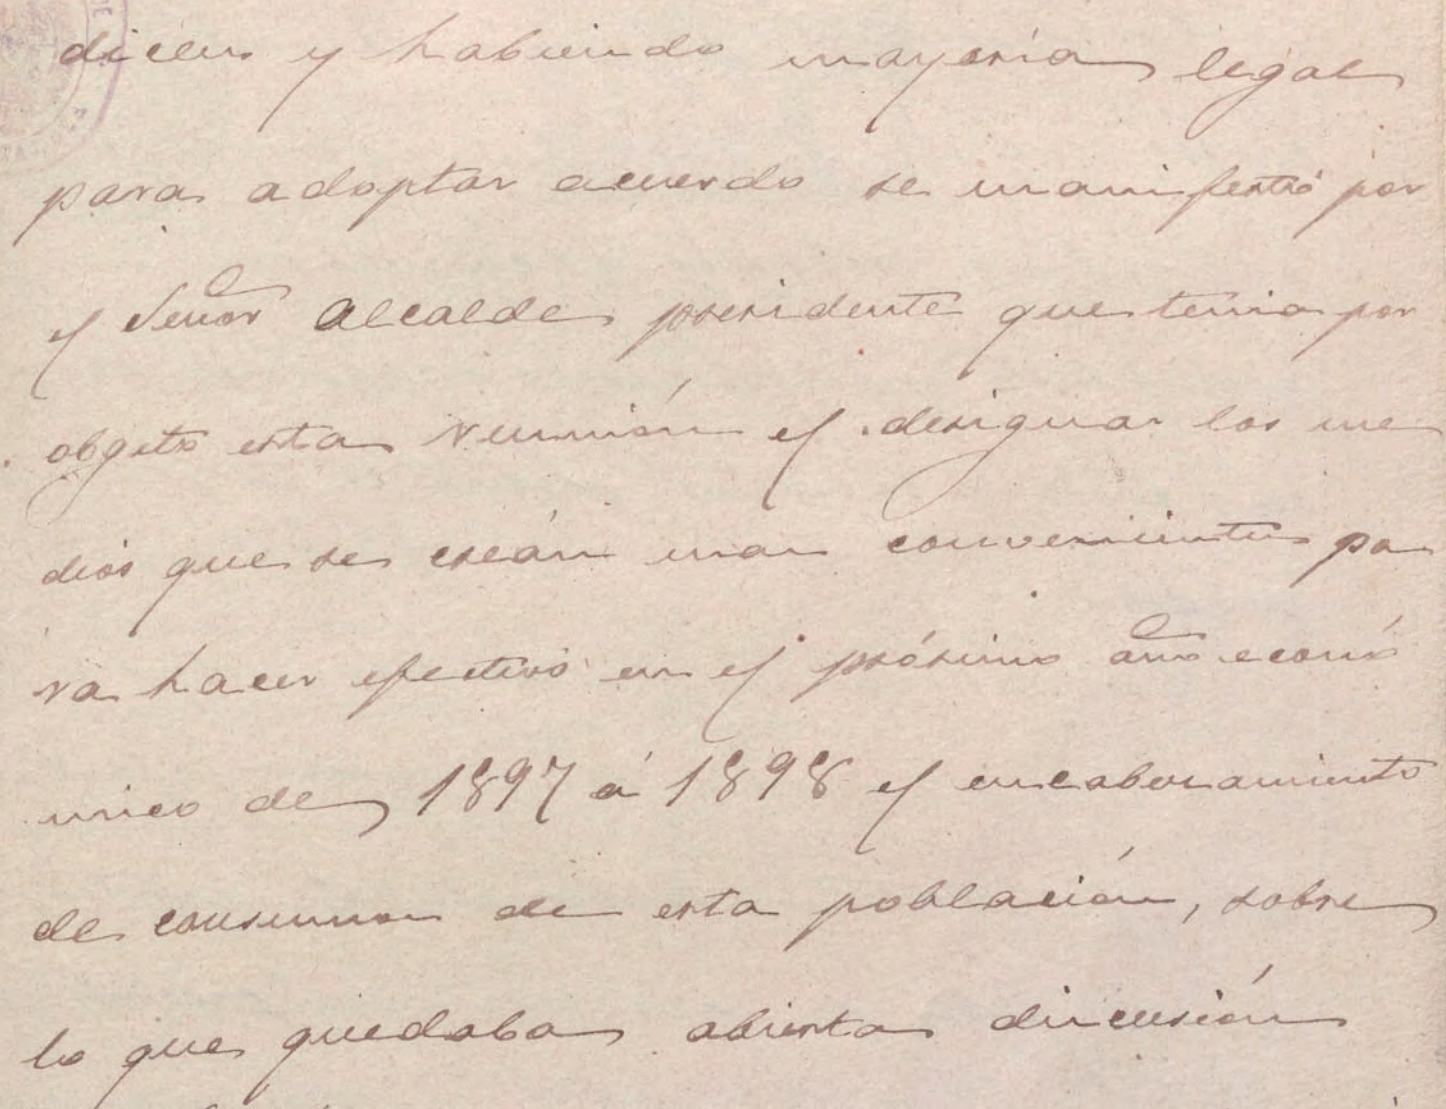 dicen y habiendo mayoría legal
para adoptar acuerdo se manifestó por
el Señor Alcalde presidente que tenia por
obgeto esta reunión el designar los me
dios que se creán mas convenientes pa
ra hacer efectivo en el próximo año econó
mico de 1897 á 1898 el encabezamiento
de consumos de esta población, sobre
lo que quedaba abierta discusión